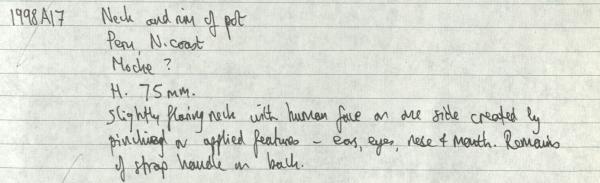 1998A17 Neck and rim of pot
Peru, N. coast
Moche ?
H. 75mm.
Slightly flaring neck with human face on one side created by
pinching or applied features - ears, eyes, nose & mouth. Remains
of strap handle on back.